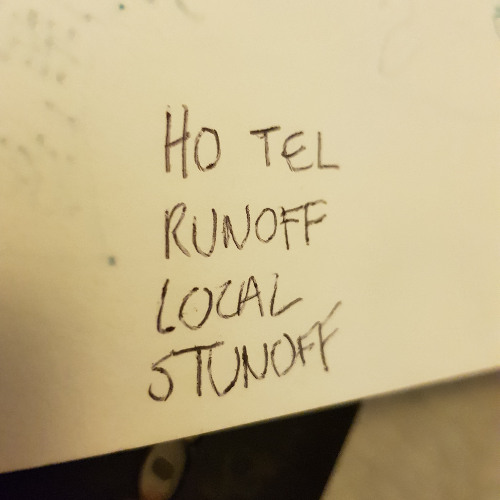 HO TEL
RUNOFF
LOCAL
STUNOFF